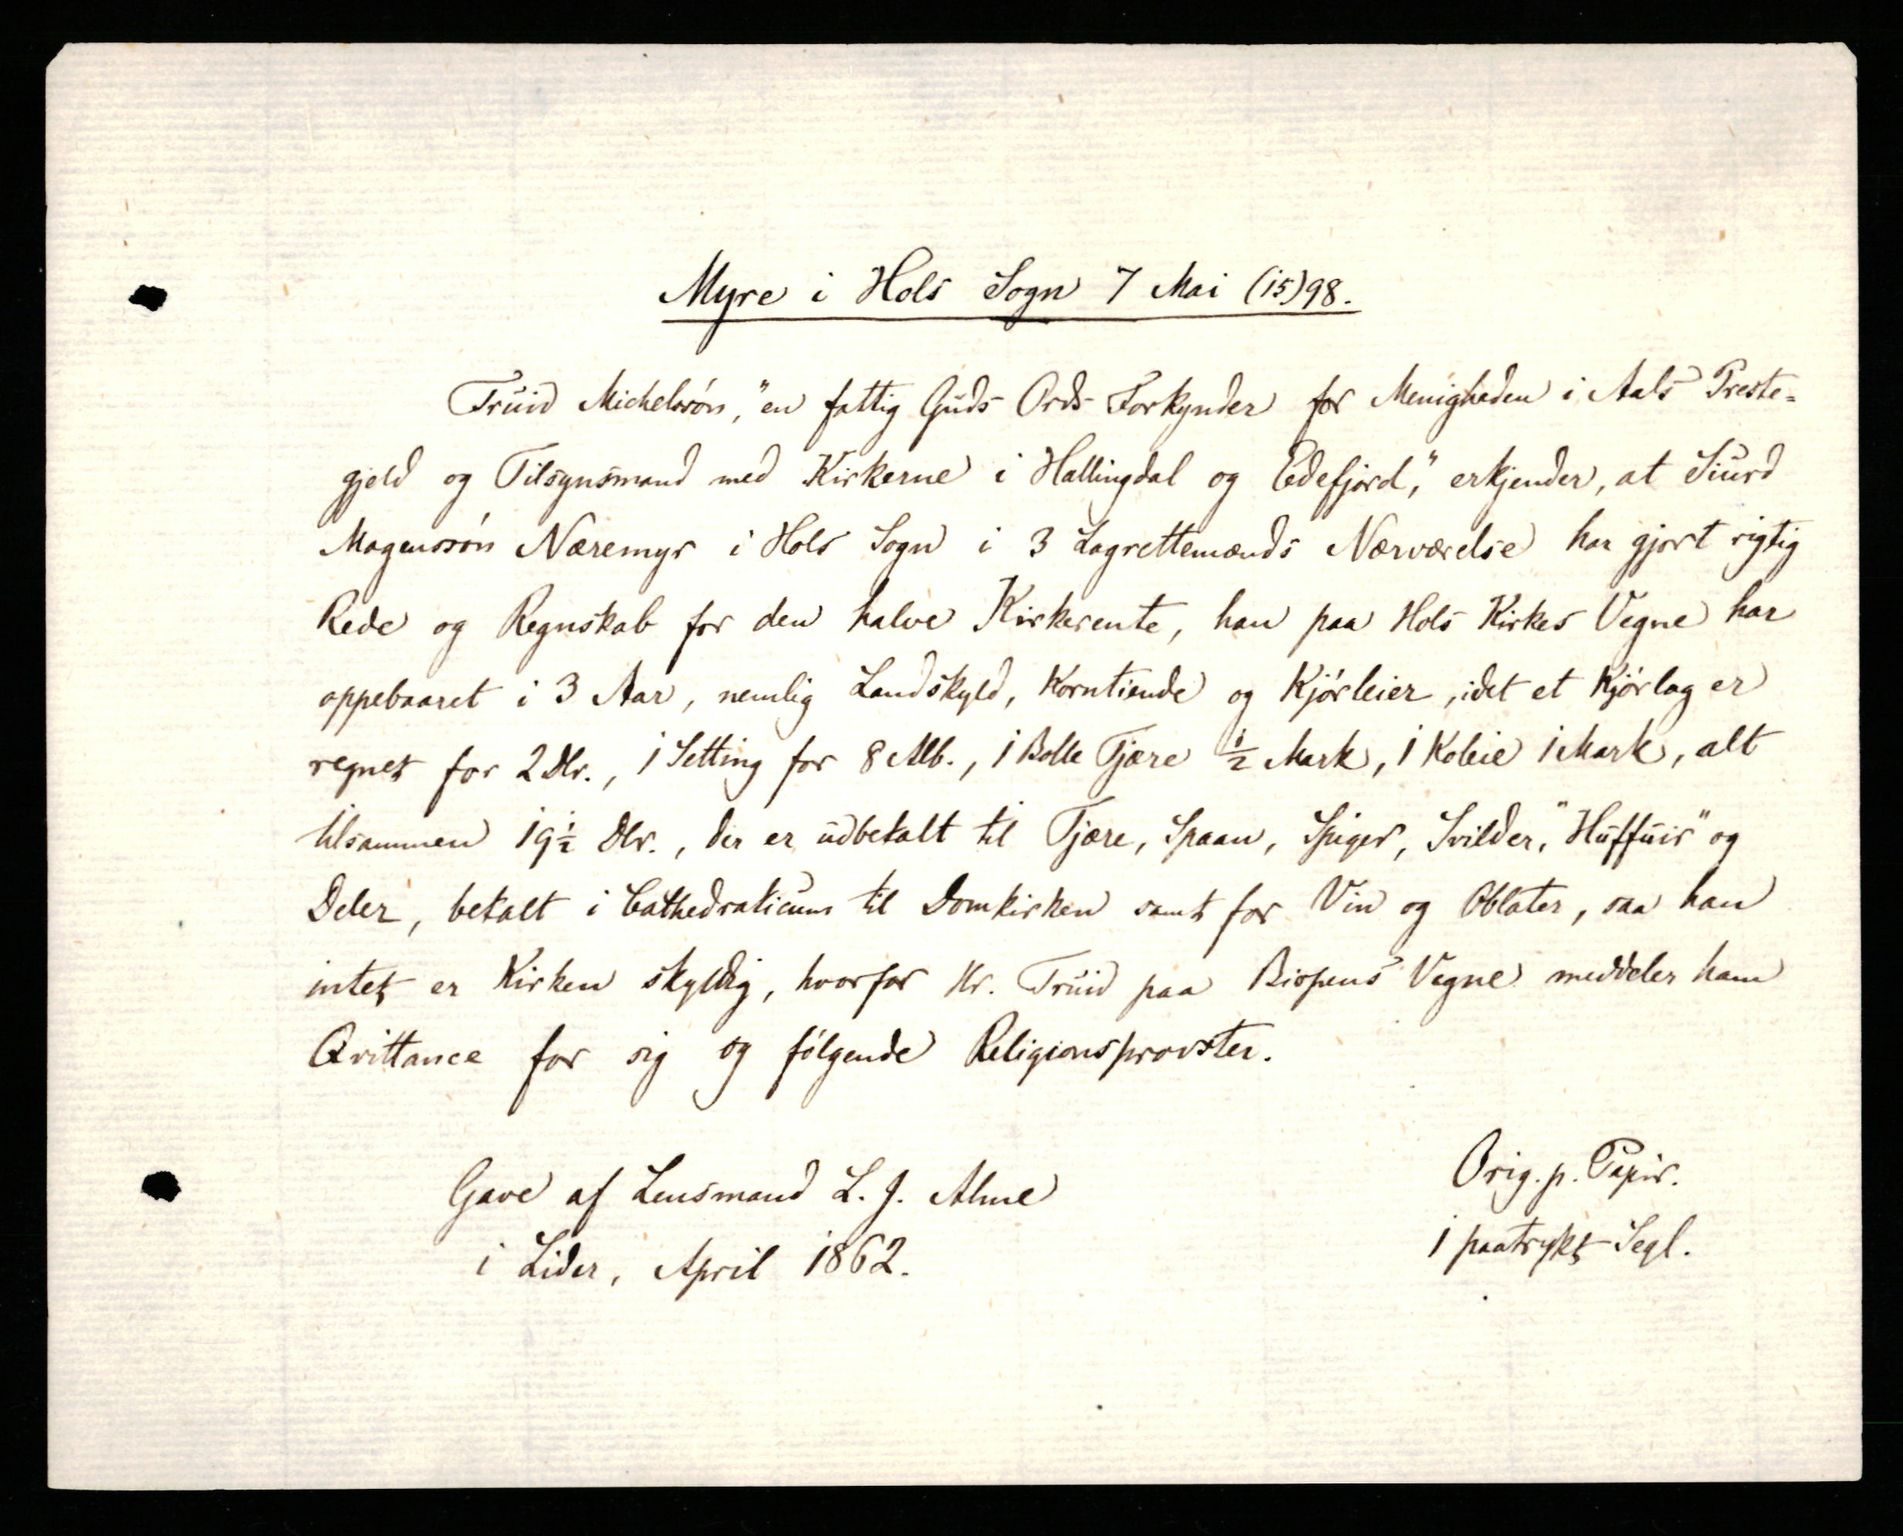 Myre i Hols Sogn 7 Mai (15)98.
Truid Michelssøn, "en fattig Guds Ords Forkynder for Menigheden i Aals Preste-
gjeld og Tilsynsmand med Kirkerne i Hallingdal og Edefjord," erkjender, at Siurd
Magenssøn Næremyr i Hols Sogn i 3 Lagrettemænds Nærværelse har gjort rigtig
Rede og Regnskab for den halve Kirkerente, han paa Hols Kirkes Vegne har
oppebaaret i 3 Aar, nemlig Landskyld, Korntiende og Kjørleier, idet et Kjørlag er
regnet for 2 Dlr., 1 Setting for 8 Alb., 1 Bolle Tjære ½ Mark, 1 Koleie 1 Mark, alt
tilsammen 19½ Dlr., der er udbetalt til Tjære, Spaan, Spiger, Svilder, "Huffuir" og
Deler, betalt i Cathedraticum til Domkirken samt for Vin og Oblater, saa han
intet er Kirken skyldig, hvorfor Hr. Truid paa Bispens Vegne meddeler ham
Qvittance for sig og følgende Religionsprovster.
Gave af Lensmand L. J. Alme
i Lider, April 1862.
Orig. p. Papir.
1 paatrykt Segl.